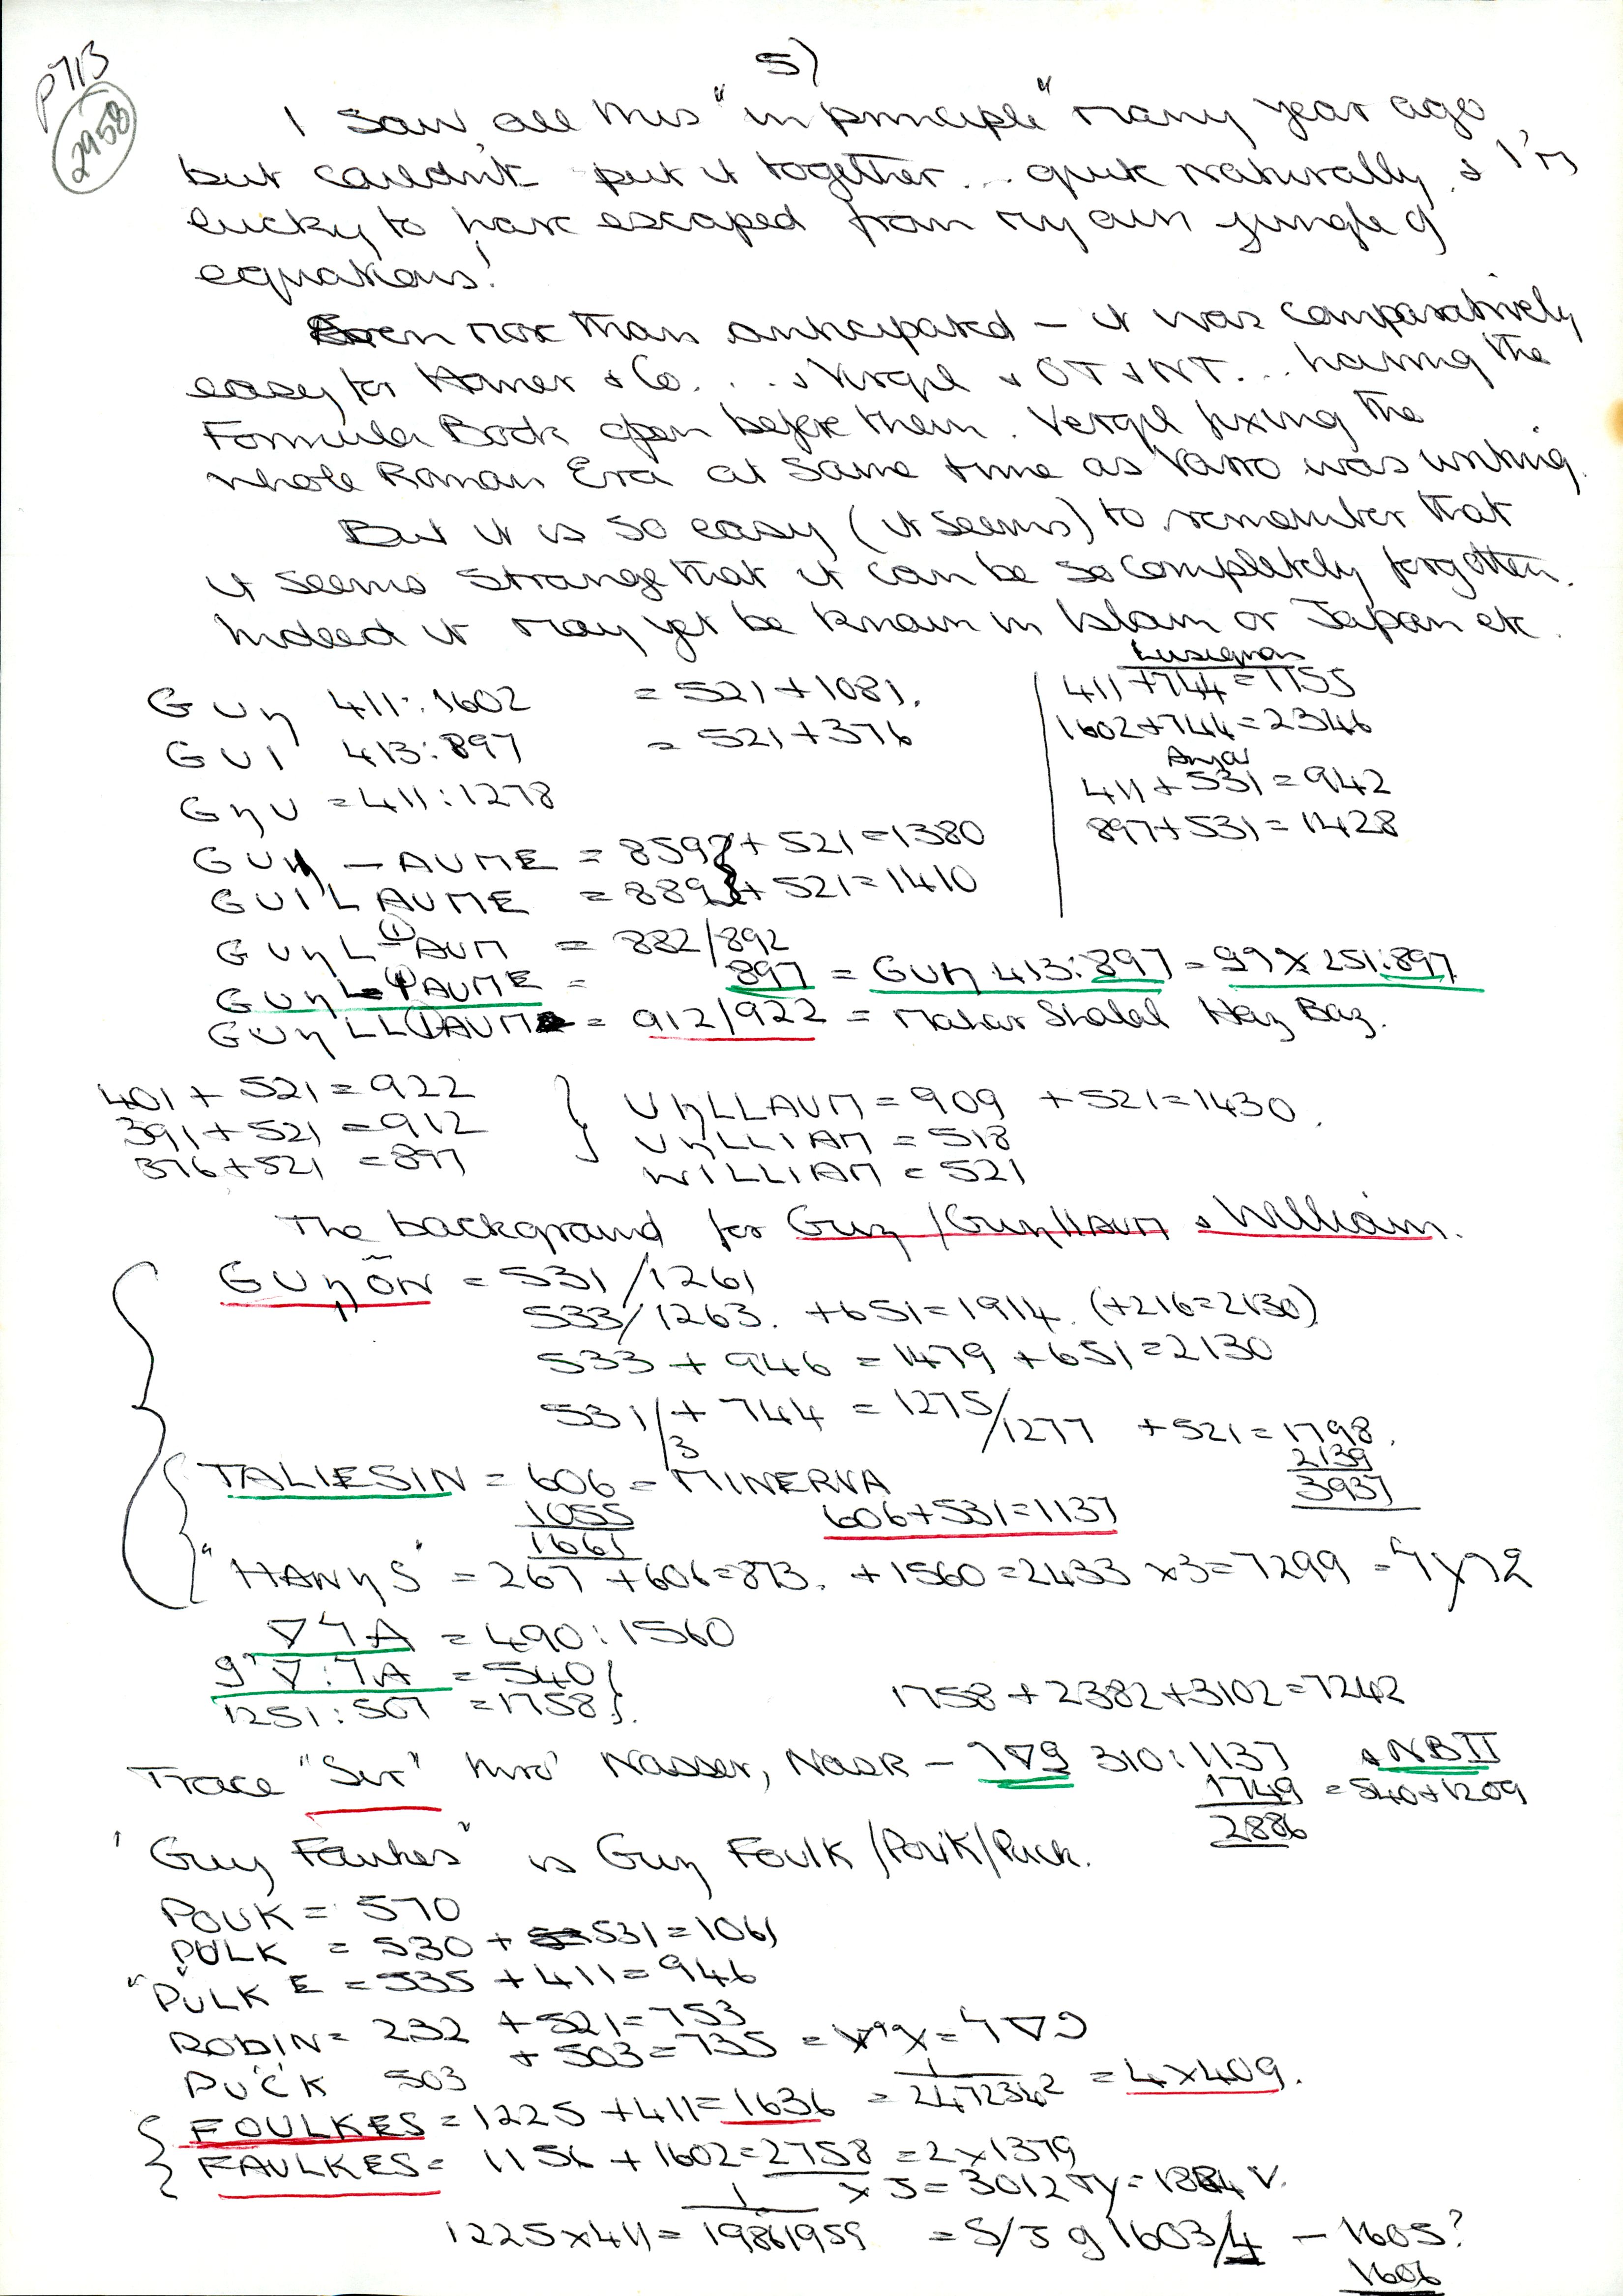 P713
2958
5)
I saw all this "in principle" many year ago
but couldn't put it together... quite naturally & I'm
lucky to have escaped from my own jungle of
equations!
Even more than anticipated – it was comparatively
easy for Homer & Co. . . & Virgil & OT & NT... having the
Formula Book open before them. Vergil fixing the
whole Roman Era at same time as Varro was writing.
But it is so easy (it seems) to remember that
it seems strange that it can be so completely forgotten.
Indeed it may yet be known in Islam or Japan etc.
GUη 411:1602 = 521+1081.
GUI 413:897 = 521+376
GηU = 411:1278
GUη – AUME = 859 } + 521 = 1380
GUILAUME = 889 } + 521 = 1410
Lusignan
411+744=1155
1602+744=2346
Anjou
411+531=942
897+531=1428
GUηL(I)AUM = 882/892
GUηL(I)AUME = 897 = GUη 413:897 = 99 x 251:897
GUηLL(I)AUM = 912/922 = Mahar Shalal Haz Baz.
401 + 521 = 922
391 + 521 = 912
376 + 521 = 897
UηLLAUM = 909 + 521 = 1430.
UηLLIAM = 518
WILLIAM = 521
The background for Guy / GuyllAUM & William.
GUηŌN = 531/1261
533/1263. +651=1914. (+216=2130)
533 + 946 = 1479 + 651 = 2130
531/3 + 744 = 1275/1277 + 521 = 1798.
2139
3937
TALIESIN = 606 = MINERVA
1055
1661
606+531=1137
"HANηS" = 267 + 606 = 873. + 1560 = 2433 x 3 = 7299 = 4 y 72
∇ЧA = 490:1560
9 ∇:7A = 540
1251:507 = 1758
1758 + 2382 + 3102 = 7242
Trace "Sir" thro' Nasser, NaSR – 7∇9 310:1137 & NBII
1749 = 540+1209
2886
"Guy Faukes" is Guy Foulk / Pouk / Puck.
POUK = 570
PULK = 530 + 531 = 1061
"PULKE" = 535 + 411 = 946
ROBIN = 232 + 521 = 753
+ 503 = 735 = 4∇9
PUCK 503
FOULKES = 1225 + 411 = 1636 = 1/2472342 = 4x409.
FAULKES = 1156 + 1602 = 2758 = 2 x 1379
x 5 = 3012 = 1884 V.
1225 x 411 = 1/19861959 = S/J g 1603/4 – 1605?
1606